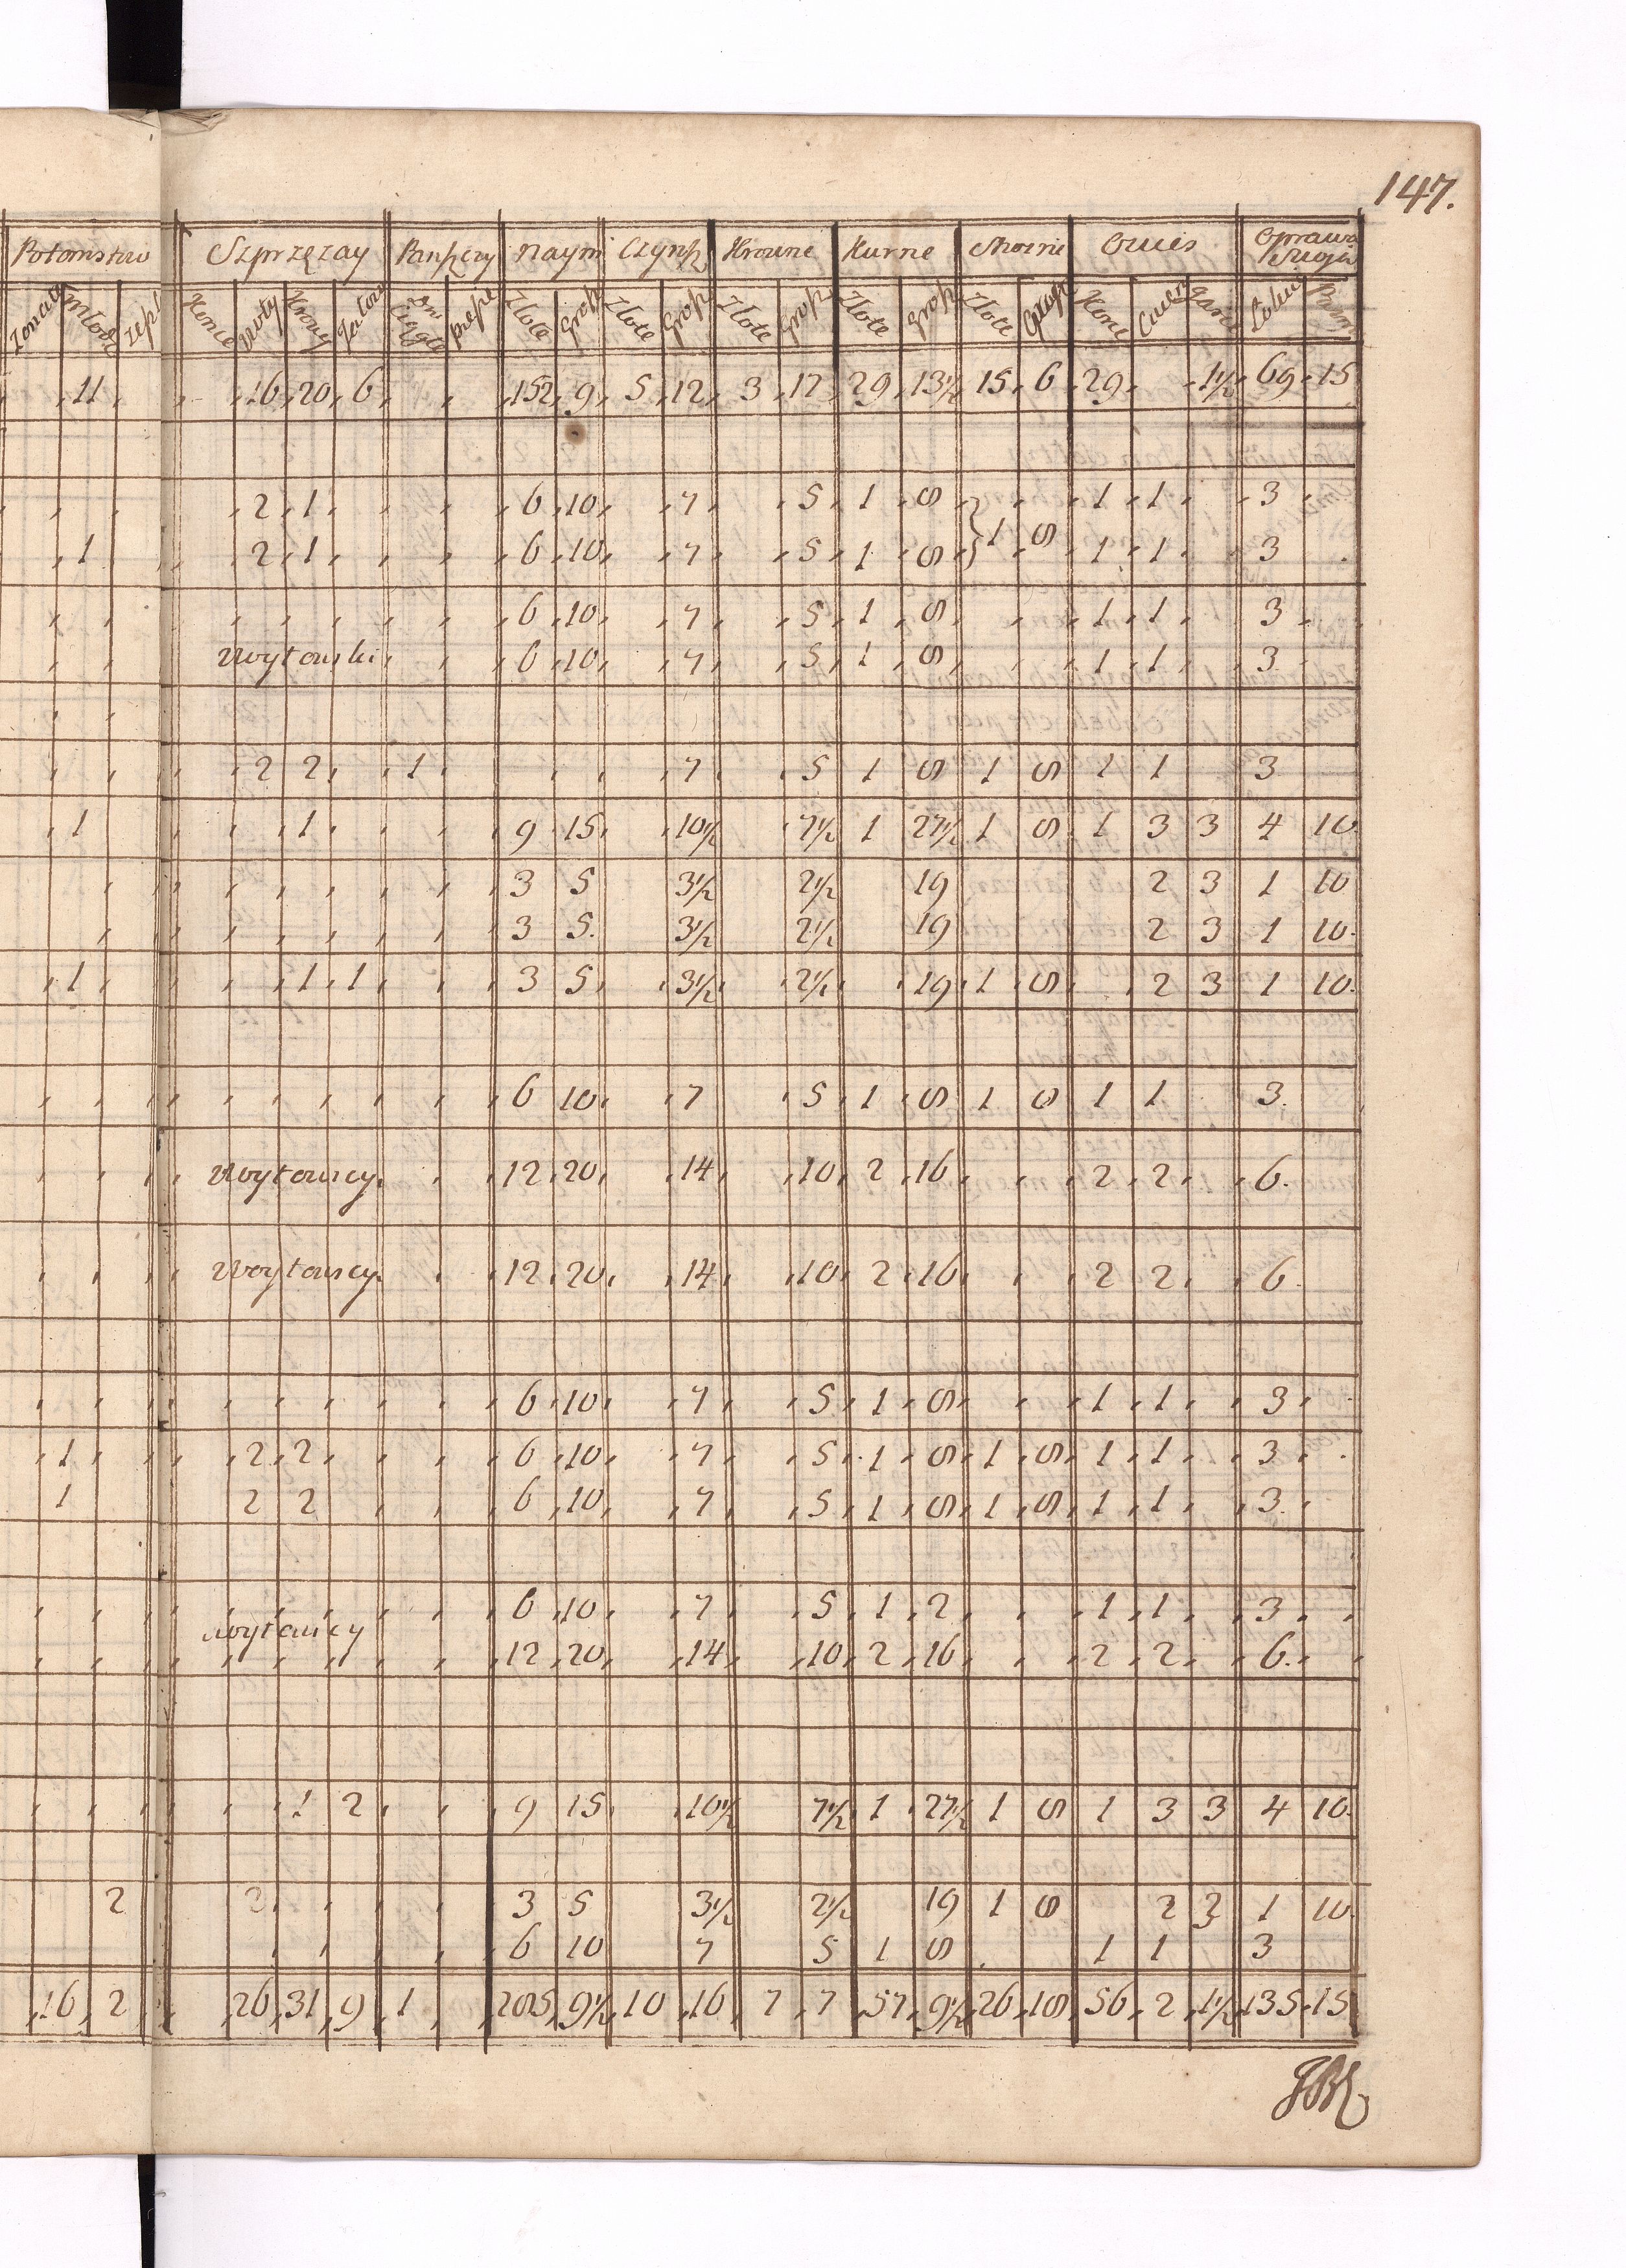 147.
Potomstwo Szprzężay Naym Czynsz Krowne Kurne Owies Oprawa
Konie Woły Krowy Złote Grosz Złote Grosz Złote Grosz Złote Grosz Złote
11 16 20 6 152 9 5 12 3 17 29 13½ 15 6 29 1½ 69 15
2 1 6 10 7 5 1 8 1 1 3
1 2 1 6 10 7 5 1 8 1 8 1 1 3
6 10 7 5 1 8 1 1 3
Woytowski 6 10 7 5 1 8 1 1 3
2 2 1 7 5 1 8 1 8 1 1 3
1 1 9 15 10½ 7½ 1 27½ 1 8 1 3 3 4 10
3 5 3½ 2½ 19 2 3 1 10
3 5 3½ 2½ 19 2 3 1 10
1 1 1 3 5 3½ 2½ 19 1 8 2 3 1 10
6 10 7 5 1 8 1 8 1 1 3
Woytowscy 12 20 14 10 2 16 2 2 6
Woytowscy 12 20 14 10 2 16 2 2 6
6 10 7 5 1 8 1 1 3
1 2 2 6 10 7 5 1 8 1 8 1 1 3
1 2 2 6 10 7 5 1 8 1 8 1 1 3
6 10 7 5 1 2 1 1 3
Woytowscy
12 20 14 10 2 16 2 2 6
1 2 9 15 10½ 7½ 1 27½ 1 8 1 3 3 4 10
2 3 5 3½ 2½ 19 1 8 2 3 1 10
6 10 7 5 1 8 1 1 3
16 2 26 31 9 1 285 9½ 10 16 7 7 57 9½ 26 18 56 2 1½ 135 15